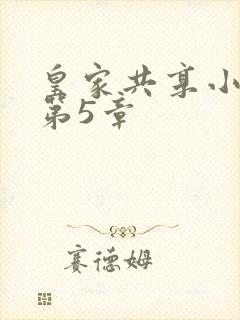 皇家共享小
第5章
赛德姆